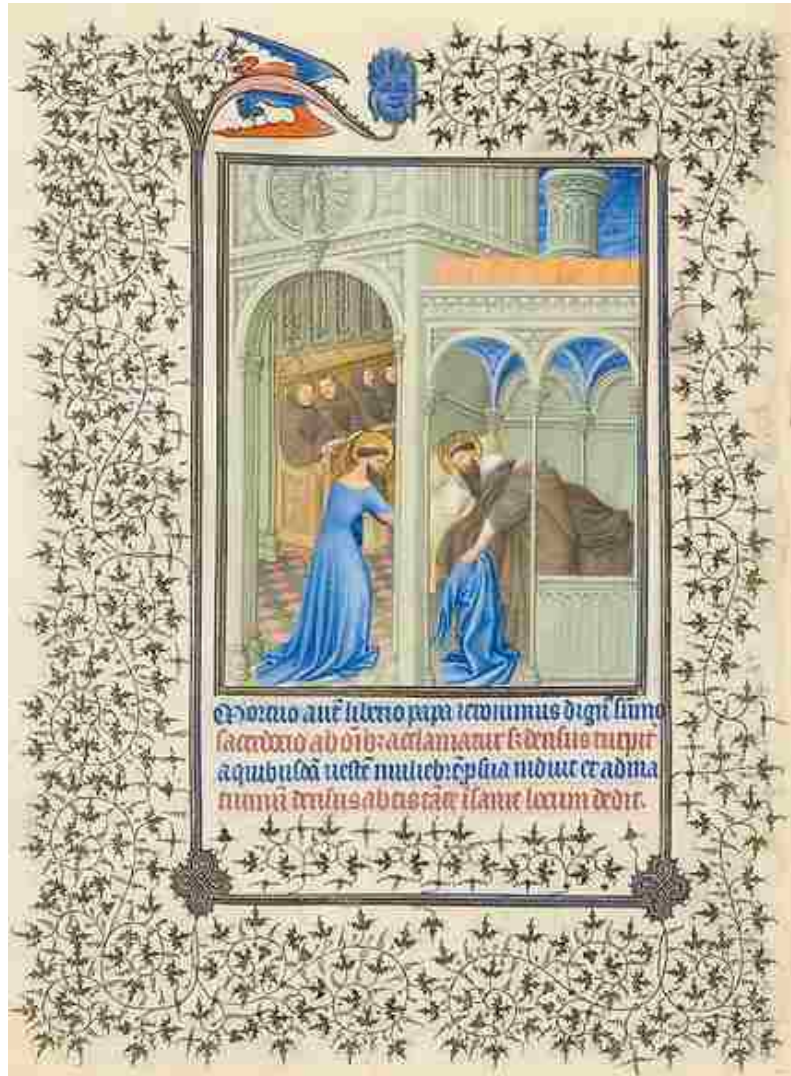 Mortuo aut̃ liberio papa ieronimus dign̄ sūmo
sacerdocio ab oĩbꝫ acclamatur sꝫ derisus turpit̃
a quibusdã uestẽ muliebrẽ p sua induit et ad ma
tutinũ derisus ab eis tãte ĩsanie locum dedit.